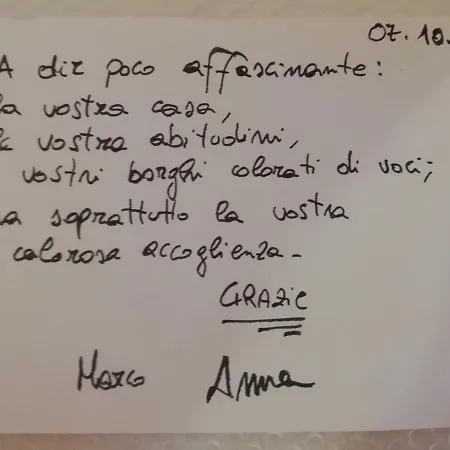 07.10.
A dir poco affascinante:
la vostra casa,
le vostra abitudini,
vostri borghi colorati di voci;
ma soprattutto la vostra
calorosa accoglienza-
GRAZIE
Marco Anna